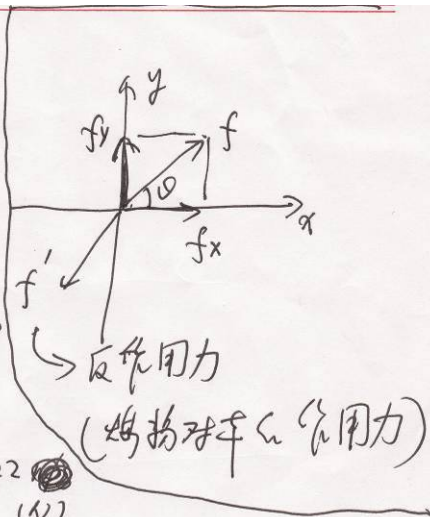 y
fy
f
θ
x
fx
f'
反作用力
(燃物对车的作用力)
22